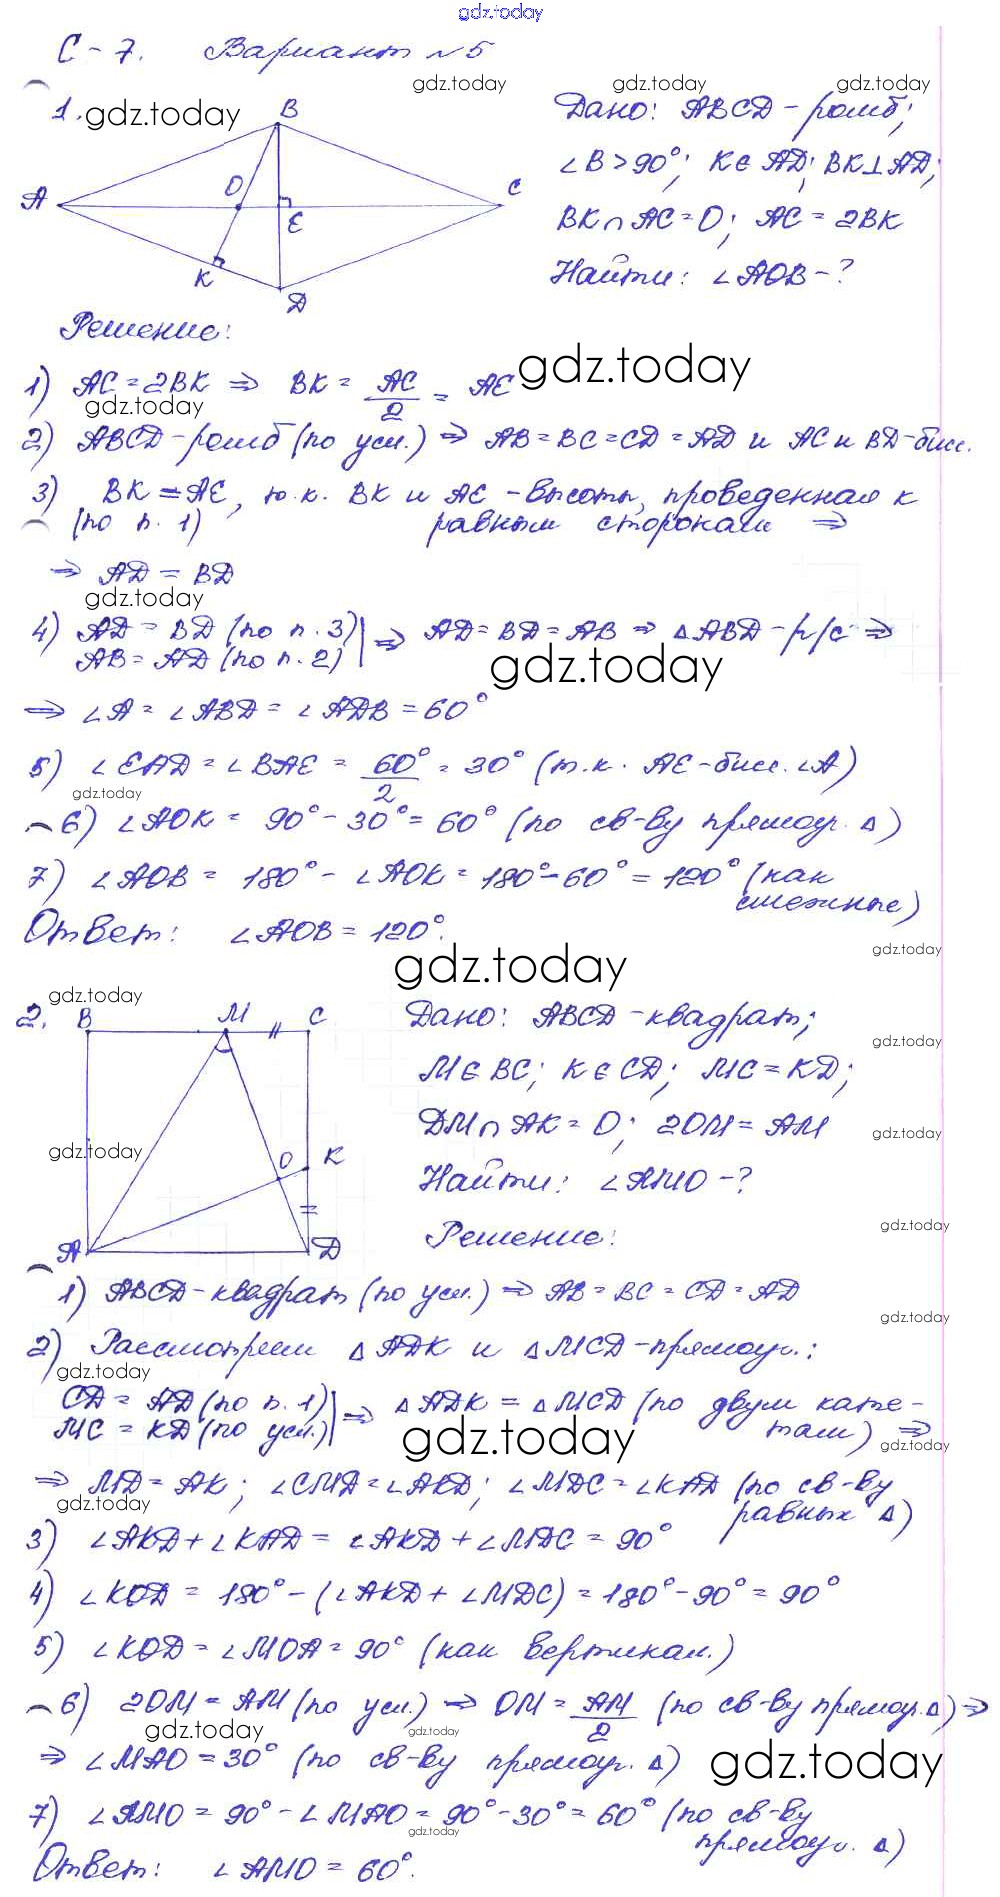 gdz.today
С-7. Вариант №5
gdz.today gdz.today gdz.today
1. gdz.today
B
A O C
E
K
D
Дано: ABCD-ромб;
∠B>90°; K∈AD; BK⊥AD;
BK∩AC=O; AC=2BK
Найти: ∠AOB-?
Решение:
1) AC=2BK ⇒ BK = AC/2 = AE
gdz.today
gdz.today
2) ABCD-ромб (по усл.) ⇒ AB=BC=CD=AD и AC и BD-бисс.
3) BK=AE, т.к. BK и AE -высоты, проведенная к
(по п. 1) равным сторонам ⇒
⇒ AD = BD
gdz.today
4) AD = BD (по п. 3) | ⇒ AD=BD=AB ⇒ △ABD-р/с ⇒
AB= AD (по п. 2) |
gdz.today
⇒ ∠A = ∠ABD = ∠ADB = 60°
5) ∠EAD = ∠BAE = 60°/2 = 30° (т.к. AE-бисс. ∠A)
gdz.today
6) ∠AOK = 90°-30°= 60° (по св-ву прямоуг. △)
7) ∠AOB = 180°- ∠AOK = 180°-60° = 120° (как
смежные)
Ответ: ∠AOB = 120°.
gdz.today
gdz.today
gdz.today
2. B M C
O K
A D
gdz.today
Дано: ABCD-квадрат;
gdz.today
M∈BC; K∈CD; MC=KD;
DM∩AK=O; 2OM=AM
gdz.today
Найти: ∠AMO-?
gdz.today
Решение:
1) ABCD-квадрат (по усл.) ⇒ AB=BC=CD=AD
gdz.today
2) Рассмотрим △ADK и △MCD-прямоуг.:
gdz.today
CD= AD (по п. 1) | ⇒ △ADK = △MCD (по двум кате-
MC = KD (по усл.) | там) ⇒
gdz.today
gdz.today
⇒ MD=AK; ∠CMD=∠AKD; ∠MDC=∠KAD (по св-ву
gdz.today
равных △)
3) ∠AKD+∠KAD = ∠AKD+∠MDC = 90°
4) ∠KOD = 180°-(∠AKD+∠MDC) = 180°-90°=90°
5) ∠KOD = ∠MOA = 90° (как вертикал.)
6) 2OM = AM (по усл.) ⇒ OM = AM/2 (по св-ву прямоуг. △) ⇒
gdz.today gdz.today
gdz.today
⇒ ∠MAO = 30° (по св-ву прямоуг. △)
7) ∠AMO = 90°-∠MAO = 90°-30°= 60° (по св-ву
gdz.today
прямоуг. △)
Ответ: ∠AMO = 60°.